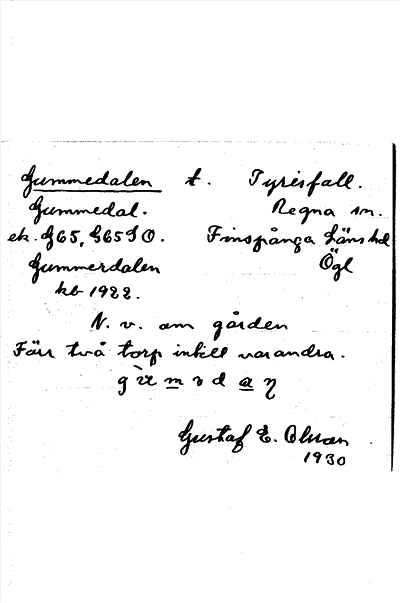 Gummedalen t. Tyrisfall.
Gummedal. Regna sn.
ek. G65, G65SO. Finspånga läns hd
Gummerdalen Ögl
kb 1922.
N. v. om gården
Förr två torp intill varandra.
Gustaf E. Olsson
1930